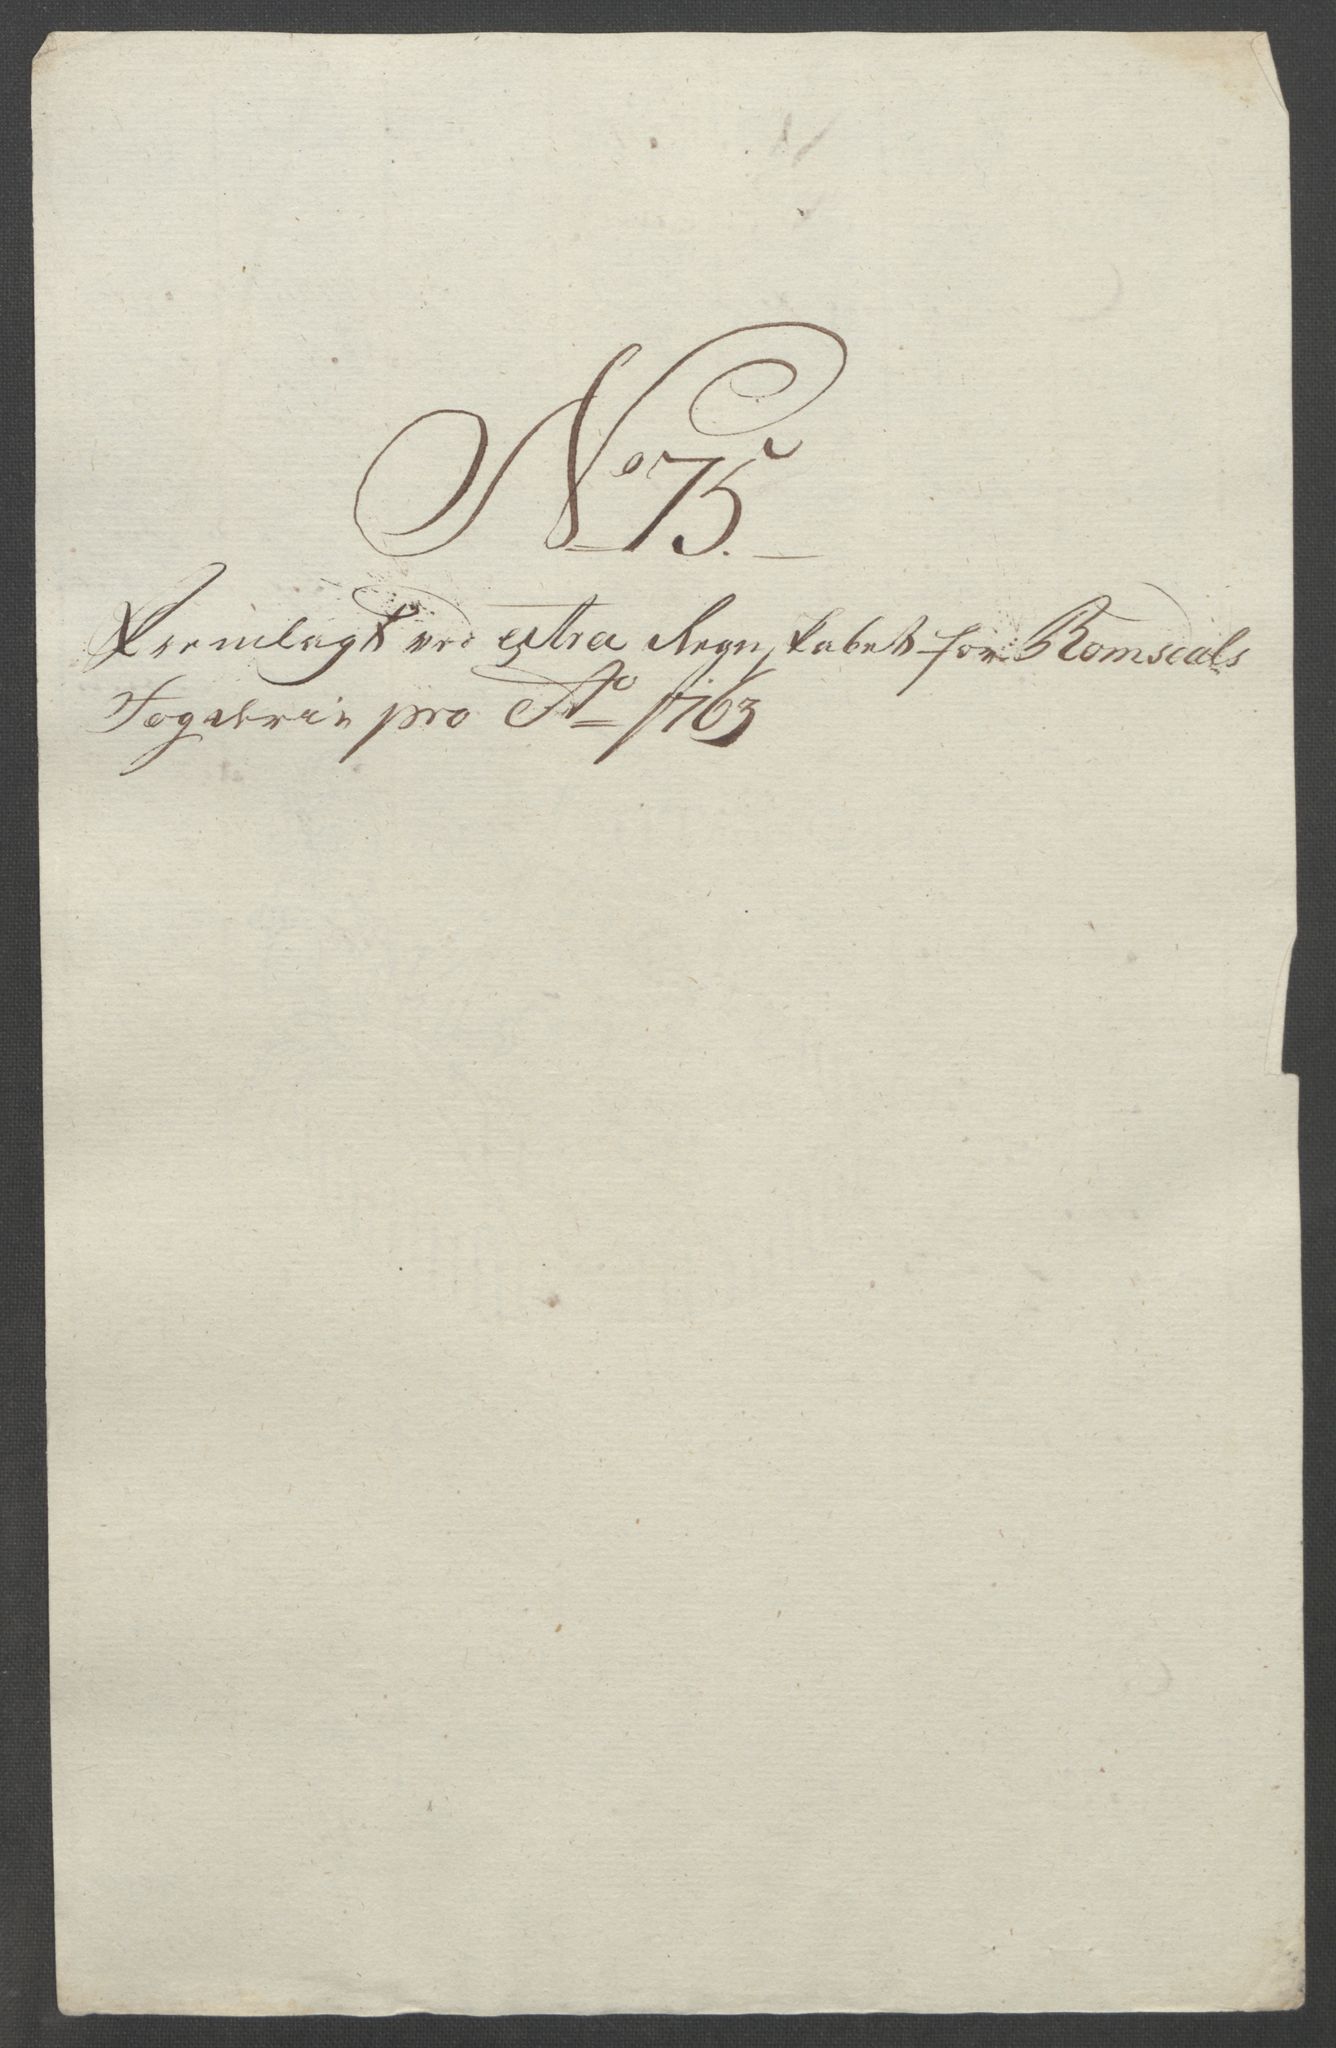 No 75.
Fremlagt ved extra Regnskabet for Romsdals
Fogderie pro Ao 1763